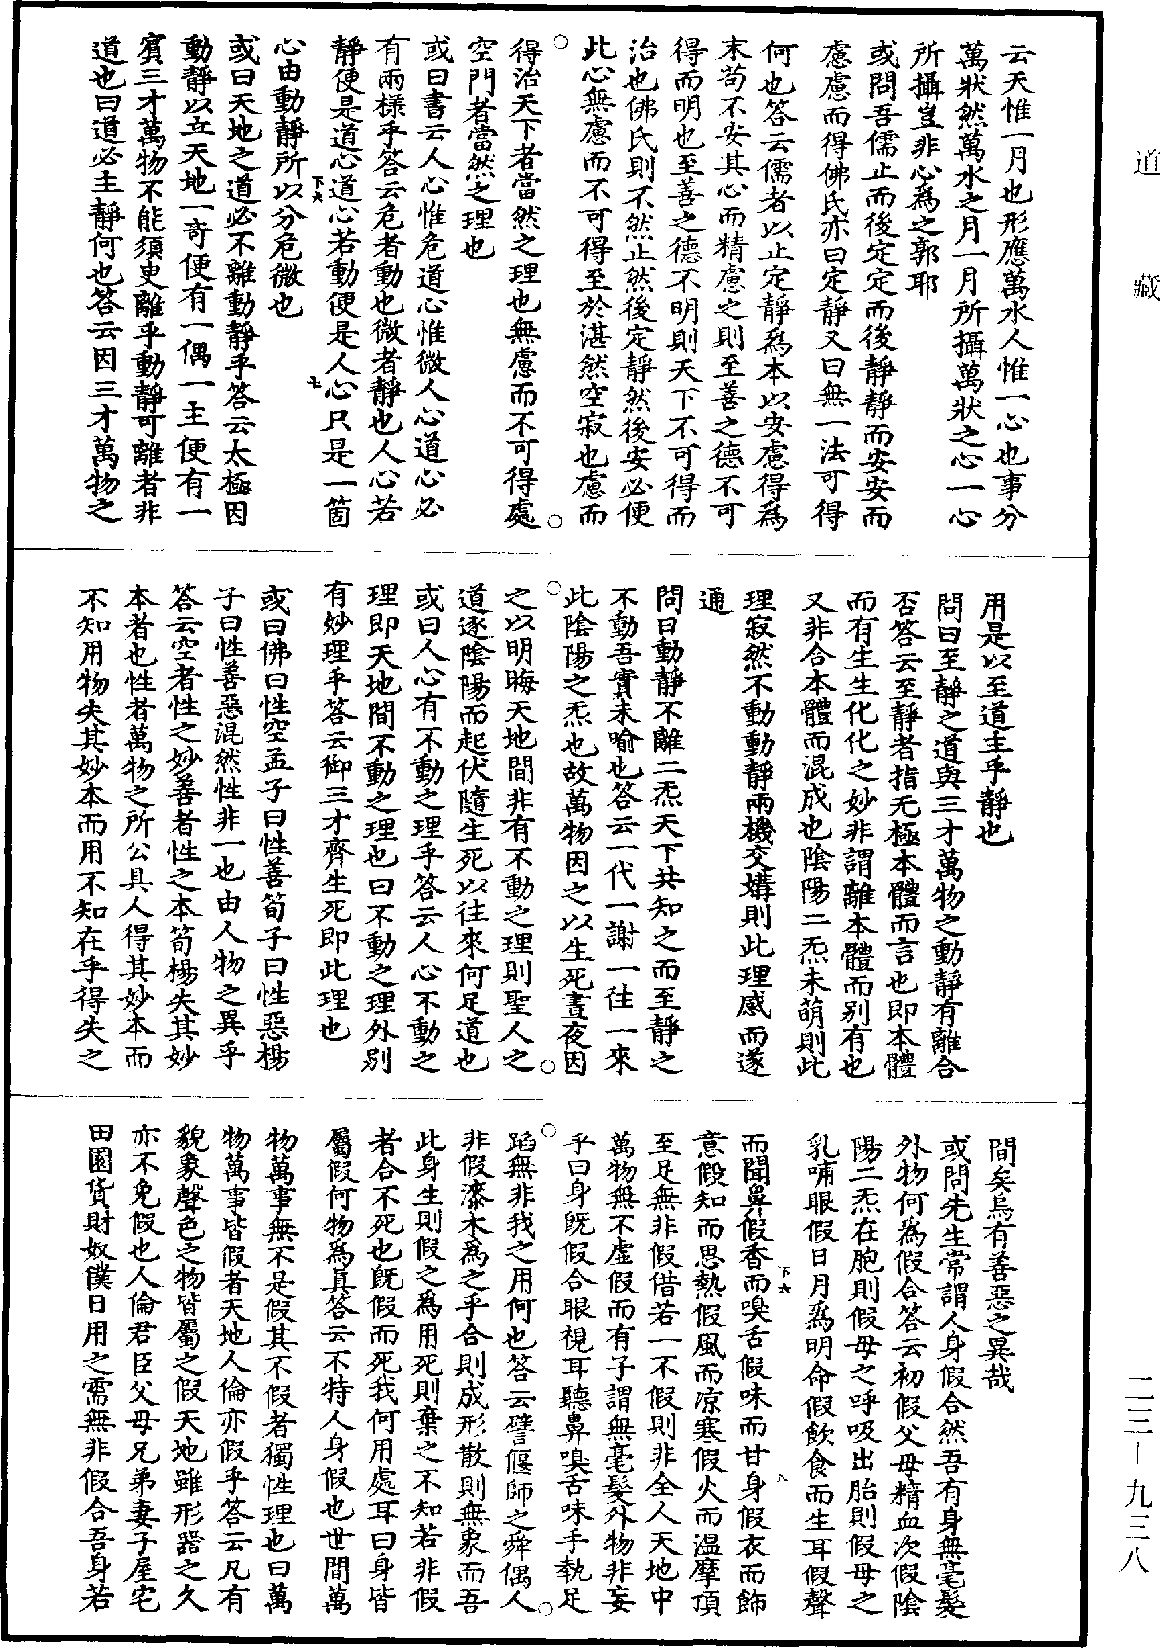 道藏
云天惟一月也形應萬水人惟一心也事分
萬狀然萬水之月一月所攝萬狀之心一心
所攝豈非心爲之郭耶
或問吾儒止而後定定而後靜靜而安安而
慮慮而得佛氏亦曰定靜又曰無一法可得
何也答云儒者以止定靜爲本以安慮得爲
末苟不安其心而精慮之則至善之德不可
得而明也至善之德不明則天下不可得而
治也佛氏則不然止然後定靜然後安必便
此心無慮而不可得至於湛然空寂也慮而
得治天下者當然之理也無慮而不可得處
空門者當然之理也
或曰書云人心惟危道心惟微人心道心必
有兩樣乎答云危者動也微者靜也人心若
靜便是道心道心若動便是人心只是一箇
心由動靜所以分危微也
或曰天地之道必不離動靜乎答云太極因
動靜以立天地一奇便有一偶一主便有一
賓三才萬物不能須臾離乎動靜可離者非
道也曰道必主靜何也答云因三才萬物之
用是以至道主乎靜也
問曰至靜之道與三才萬物之動靜有離合
否答云至靜者指无極本體而言也即本體
而有生生化化之妙非謂離本體而別有也
又非合本體而混成也陰陽二炁未萌則此
理寂然不動動靜兩機交媾則此理感而遂
通
問曰動靜不離二炁天下共知之而至靜之
不動吾實未喻也答云一代一謝一往一來
此陰陽之炁也故萬物因之以生死晝夜因
之以明晦天地間非有不動之理則聖人之
道逐陰陽而起伏隨生死以往來何足道也
或曰人心有不動之理乎答云人心不動之
理即天地間不動之理也曰不動之理外別
有妙理乎答云御三才齊生死即此理也
或曰佛曰性空孟子曰性善荀子曰性惡楊
子曰性善惡混然性非一也由人物之異乎
答云空者性之妙善者性之本荀楊失其妙
本者也性者萬物之所公具人得其妙本而
不知用物失其妙本而用不知在乎得失之
間矣烏有善惡之異哉
或問先生常謂人身假合然吾有身無毫髮
外物何爲假合答云初假父母精血次假陰
陽二炁在胞則假母之呼吸出胎則假母之
乳哺眼假日月爲明命假飲食而生耳假聲
而聞鼻假香而嗅舌假味而甘身假衣而飾
意假知而思熱假風而凉寒假火而温摩頂
至足無非假借若一不假則非全人天地中
萬物無不虛假而有子謂無毫髮外物非妄
乎曰身旣假合眼視耳聽鼻嗅舌味手執足
蹈無非我之用何也答云譬偃師之舜偶人
非假漆木爲之乎合則成形散則無象而吾
此身生則假之爲用死則棄之不知若非假
者合不死也旣假而死我何用處耳曰身皆
屬假何物爲真答云不特人身假也世間萬
物萬事無不是假其不假者獨性理也曰萬
物萬事皆假者天地人倫亦假乎答云凡有
貌象聲色之物皆屬之假天地雖形器之久
亦不免假也人倫君臣父母兄弟妻子屋宅
田園貨財奴僕日用之需無非假合吾身若
二三—九三八